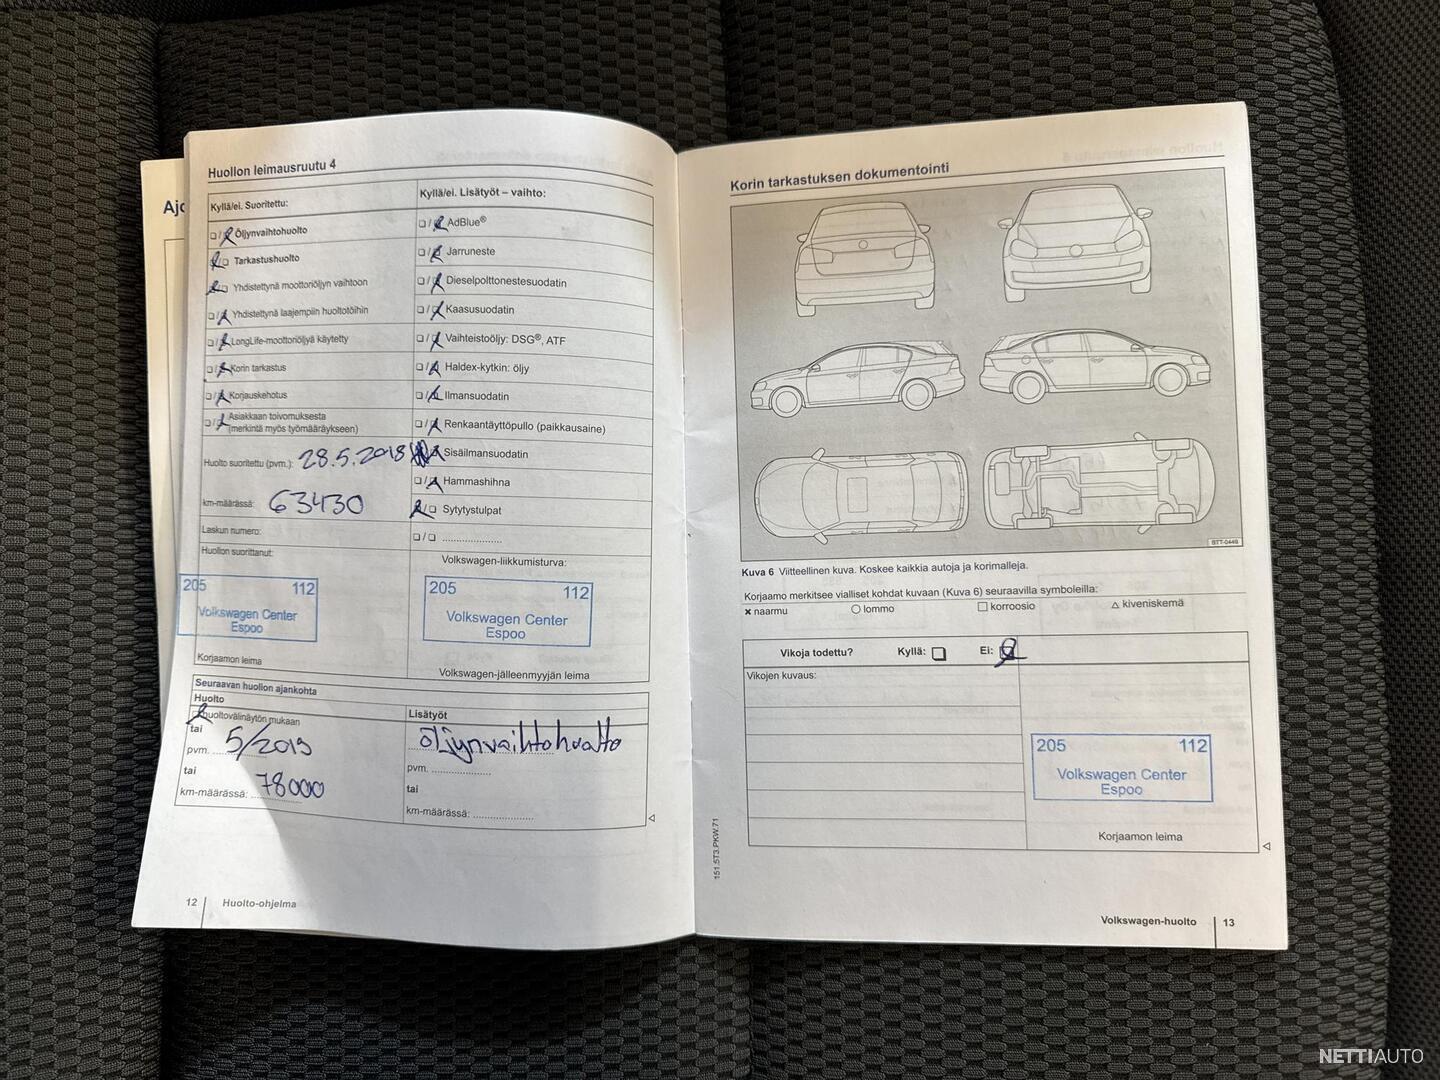 Ajo
Huollon leimausruutu 4
Kyllä/ei. Suoritettu:
Öljynvaihtohuolto
Tarkastushuolto
Yhdistettynä moottoriöljyn vaihtoon
Yhdistettynä laajempiin huoltotöihin
LongLife-moottoriöljyä käytetty
Korin tarkastus
Korjauskehotus
Asiakkaan toivomuksesta
(merkintä myös työmääräykseen)
Huolto suoritettu (pvm.): 28.5.2018
km-määrässä: 63430
Laskun numero:
Huollon suorittanut:
205 112
Volkswagen Center
Espoo
Korjaamon leima
Kyllä/ei. Lisätyöt – vaihto:
AdBlue®
Jarruneste
Dieselpolttonestesuodatin
Kaasusuodatin
Vaihteistoöljy: DSG®, ATF
Haldex-kytkin: öljy
Ilmansuodatin
Renkaantäyttöpullo (paikkausaine)
Sisäilmansuodatin
Hammashihna
Sytytystulpat
☐ / ☐ .....................
Volkswagen-liikkumisturva:
205 112
Volkswagen Center
Espoo
Volkswagen-jälleenmyyjän leima
Seuraavan huollon ajankohta
Huolto
huoltovälinäytön mukaan
tai
pvm. 5/2019
tai
km-määrässä: 78000
Lisätyöt
öljynvaihtohuolto
pvm. ....................
tai
km-määrässä: ....................
12 Huolto-ohjelma
Korin tarkastuksen dokumentointi
BTT-0449
Kuva 6 Viitteellinen kuva. Koskee kaikkia autoja ja korimalleja.
Korjaamo merkitsee vialliset kohdat kuvaan (Kuva 6) seuraavilla symboleilla:
× naarmu ○ lommo □ korroosio △ kiveniskemä
Vikoja todettu? Kyllä: ☐ Ei:
Vikojen kuvaus:
205 112
Volkswagen Center
Espoo
Korjaamon leima
151.5T3.PKW.71
Volkswagen-huolto 13
NETTIAUTO